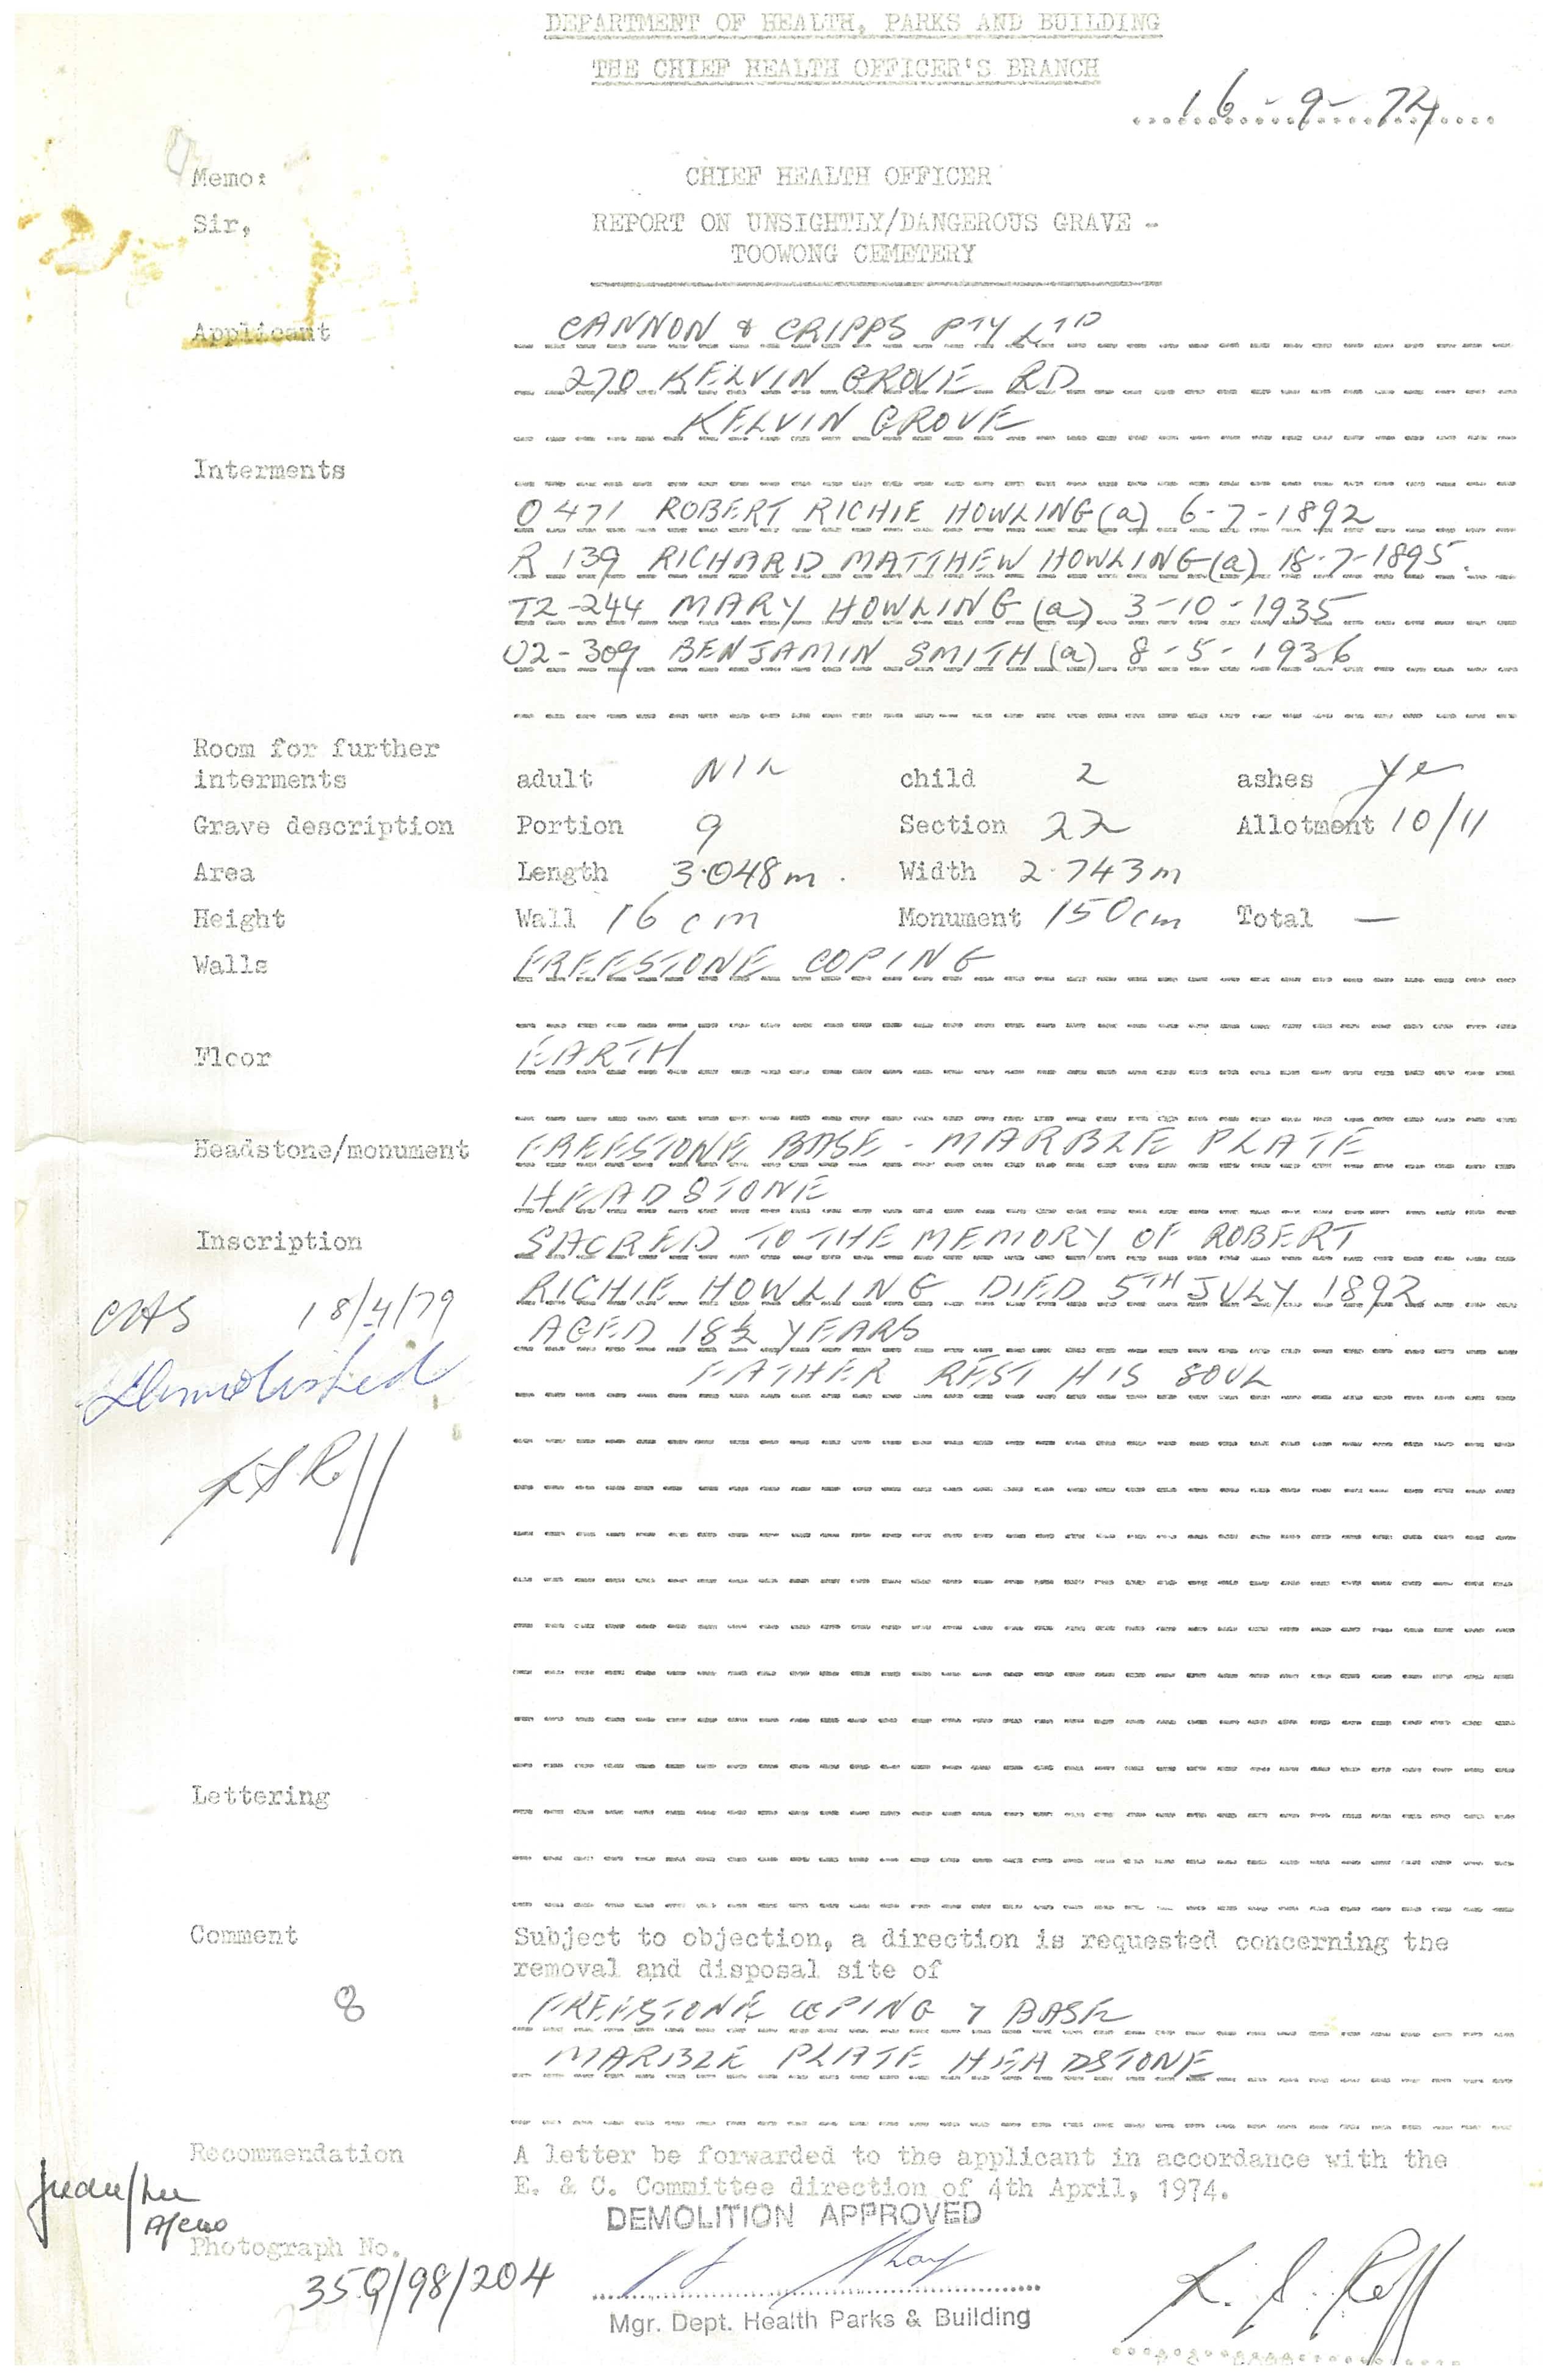 DEPARTMENT OF HEALTH, PARKS AND BUILDING
THE CHIEF HEALTH OFFICER'S BRANCH
16-9-74
Memo: CHIEF HEALTH OFFICER
Sir, REPORT ON UNSIGHTLY/DANGEROUS GRAVE -
TOOWONG CEMETERY
Applicant CANNON & CRIPPS PTY LTD
270 KELVIN GROVE RD
KELVIN GROVE
Interments
O 471 ROBERT RICHIE HOWLING (a) 6-7-1892
R 139 RICHARD MATTHEW HOWLING (a) 18-7-1895.
T2-244 MARY HOWLING (a) 3-10-1935
U2-309 BENJAMIN SMITH (a) 8-5-1936
Room for further
interments adult NIL child 2 ashes Yes
Grave description Portion 9 Section 22 Allotment 10/11
Area Length 3.048m. Width 2.743m
Height Wall 16cm Monument 150cm Total —
Walls FREESTONE COPING
Floor EARTH
Headstone/monument FREESTONE BASE - MARBLE PLATE
HEADSTONE
Inscription SACRED TO THE MEMORY OF ROBERT
RICHIE HOWLING DIED 5TH JULY 1892
18/4/79
AGED 18½ YEARS
Demolished FATHER REST HIS SOUL
Lettering
Comment Subject to objection, a direction is requested concerning the
removal and disposal site of
8 FREESTONE COPING & BASE
MARBLE PLATE HEADSTONE
Recommendation A letter be forwarded to the applicant in accordance with the
E. & C. Committee direction of 4th April, 1974.
DEMOLITION APPROVED
Photograph No.
35Q/98/204
Mgr. Dept. Health Parks & Building